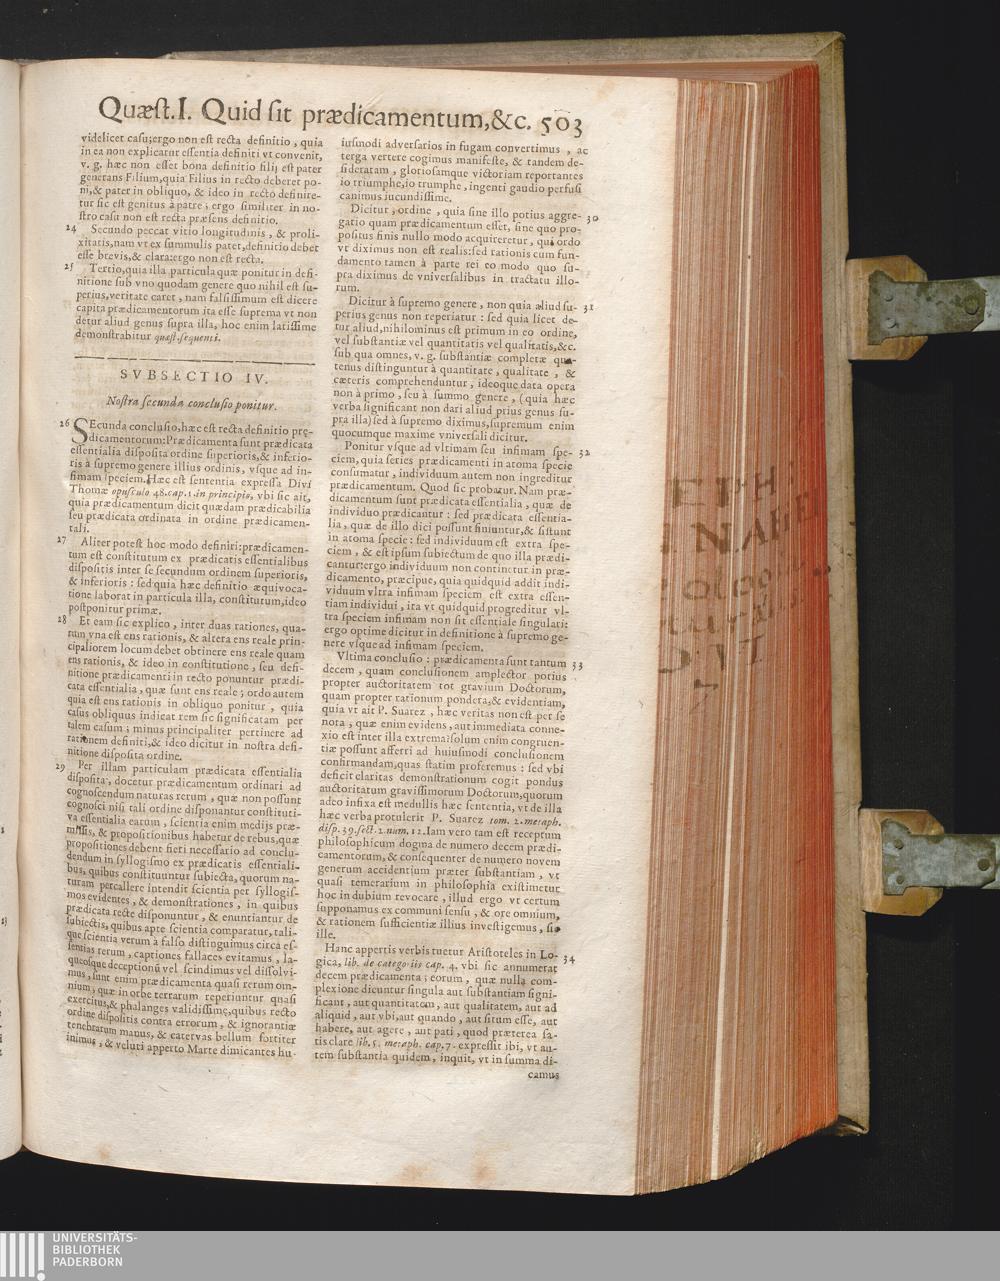 Quæst.I. Quid sit prædicamentum,&c. 503
videlicet casu;ergo non est recta definitio, quia
in ea non explicatur essentia definiti vt convenit,
v. g. hæc non esset bona definitio filij est pater
generans Filium,quia Filius in recto deberet po-
ni,& pater in obliquo, & ideo in recto definire-
tur sic est genitus à patre; ergo similiter in no-
stro casu non est recta præsens definitio.
24 Secundo peccat vitio longitudinis, & proli-
xitatis,nam vt ex summulis patet,definitio debet
esse brevis,& clara:ergo non est recta.
25 Tertio,quia illa particula quæ ponitur in defi-
nitione sub vno quodam genere quo nihil est su-
perius,veritate caret, nam falsissimum est dicere
capita prædicamentorum ita esse suprema vt non
detur aliud genus supra illa, hoc enim latissime
demonstrabitur quæst.sequenti.
SVBSECTIO IV.
Nostra secunda conclusio ponitur.
26 SEcunda conclusio,hæc est recta definitio præ-
dicamentorum:Prædicamenta sunt prædicata
essentialia disposita ordine superioris,& inferio-
ris à supremo genere illius ordinis, vsque ad in-
fimam speciem.Hæc est sententia expressa Divi
Thomæ opusculo 48.cap.1.in principio, vbi sic ait,
quia prædicamentum dicit quædam prædicabilia
seu prædicata ordinata in ordine prædicamen-
tali.
27 Aliter potest hoc modo definiri:prædicamen-
tum est constitutum ex prædicatis essentialibus
dispositis inter se secundum ordinem superioris,
& inferioris : sed quia hæc definitio æquivoca-
tione laborat in particula illa, constitutum,ideo
postponitur primæ.
28 Et eam sic explico, inter duas rationes, qua-
rum vna est ens rationis, & altera ens reale prin-
cipaliorem locum debet obtinere ens reale quam
ens rationis, & ideo in constitutione, seu defi-
nitione prædicamenti in recto ponuntur prædi-
cata essentialia, quæ sunt ens reale; ordo autem
quia est ens rationis in obliquo ponitur, quia
casus obliquus indicat rem sic significatam per
talem casum; minus principaliter pertinere ad
rationem definiti,& ideo dicitur in nostra defi-
nitione disposita ordine.
29 Per illam particulam prædicata essentialia
disposita, docetur prædicamentum ordinari ad
cognoscendum naturas rerum, quæ non possunt
cognosci nisi tali ordine disponantur constituti-
va essentialia earum, scientia enim medijs præ-
missis, & propositionibus habetur de rebus,quæ
propositiones debent fieri necessario ad conclu-
dendum in syllogismo ex prædicatis essentiali-
bus, quibus constituuntur subiecta, quorum na-
turam percallere intendit scientia per syllogis-
mos evidentes, & demonstrationes, in quibus
prædicata recte disponuntur, & enuntiantur de
subiectis, quibus apte scientia comparatur, tali-
que scientia verum à falso distinguimus circa es-
sentias rerum, captiones fallaces evitamus, la-
queosque deceptionũ vel scindimus vel dissolvi-
mus, sunt enim prædicamenta quasi rerum om-
nium, quæ in orbe terrarum reperiuntur quasi
exercitus,& phalanges validissimę,quibus recto
ordine dispositis contra errorum, & ignorantiæ
tenebrarum manus, & catervas bellum fortiter
inimus, & veluti apperto Marte dimicantes hu-
iusmodi adversarios in fugam convertimus, ac
terga vertere cogimus manifeste, & tandem de-
sideratam, gloriosamque victoriam reportantes
io triumphe,io triumphe, ingenti gaudio perfusi
canimus iucundissime.
Dicitur, ordine, quia sine illo potius aggre- 30
gatio quam prædicamentum esset, sine quo pro-
positus finis nullo modo acquireretur, qui ordo
vt diximus non est realis:sed rationis cum fun-
damento tamen à parte rei eo modo quo su-
pra diximus de vniversalibus in tractatu illo-
rum.
Dicitur à supremo genere, non quia aliud su- 31
perius genus non reperiatur : sed quia licet de-
tur aliud,nihilominus est primum in eo ordine,
vel substantiæ vel quantitatis vel qualitatis,&c.
sub qua omnes, v. g. substantiæ completæ qua-
tenus distinguntur à quantitate, qualitate, &
cæteris comprehenduntur, ideoque data opera
non à primo, seu à summo genere, (quia hæc
verba significant non dari aliud prius genus su-
pra illa) sed à supremo diximus,supremum enim
quocumque maxime vniversali dicitur.
Ponitur vsque ad vltimam seu infimam spe- 32
ciem, quia series prædicamenti in atoma specie
consumatur, individuum autem non ingreditur
prædicamentum. Quod sic probatur. Nam præ-
dicamentum sunt prædicata essentialia, quæ de
individuo prædicantur : sed prædicata essentia-
lia, quæ de illo dici possunt finiuntur,& sistunt
in atoma specie: sed individuum est extra spe-
ciem, & est ipsum subiectum de quo illa prædi-
cantur:ergo individuum non continetur in præ-
dicamento, præcipue, quia quidquid addit indi-
viduum vltra infimam speciem est extra essen-
tiam individui, ita vt quidquid progreditur vl-
tra speciem infimam non sit essentiale singulari:
ergo optime dicitur in definitione à supremo ge-
nere vsque ad infimam speciem.
Vltima conclusio : prædicamenta sunt tantum 33
decem, quam conclusionem amplector potius
propter auctoritatem tot gravium Doctorum,
quam propter rationum pondera,& evidentiam,
quia vt ait P. Suarez, hæc veritas non est per se
nota, quæ enim evidens, aut immediata conne-
xio est inter illa extrema?solum enim congruen-
tiæ possunt afferri ad huiusmodi conclusionem
confirmandam,quas statim proferemus : sed vbi
deficit claritas demonstrationum cogit pondus
auctoritatum gravissimorum Doctorum,quorum
adeo infixa est medullis hæc sententia, vt de illa
hæc verba protulerit P. Suarez tom. 2.metaph.
disp.39.sect.2.num.12.Iam vero tam est receptum
philosophicum dogma de numero decem prædi-
camentorum, & consequenter de numero novem
generum accidentium præter substantiam, vt
quasi temerarium in philosophia existimetur
hoc in dubium revocare, illud ergo vt certum
supponamus ex communi sensu, & ore omnium,
& rationem sufficientiæ illius investigemus, sic
ille.
Hanc appertis verbis tuetur Aristoteles in Lo- 34
gica, lib. de categoriis cap. 4. vbi sic annumerat
decem prædicamenta; eorum, quæ nulla com-
plexione dicuntur singula aut substantiam signi-
ficant, aut quantitatem, aut qualitatem, aut ad
aliquid, aut vbi,aut quando, aut situm esse, aut
habere, aut agere, aut pati, quod præterea sa-
tis clare lib.5. metaph. cap.7. expressit ibi, vt au-
tem substantia quidem, inquit, vt in summa di-
camus
UNIVERSITÄTS-
BIBLIOTHEK
PADERBORN